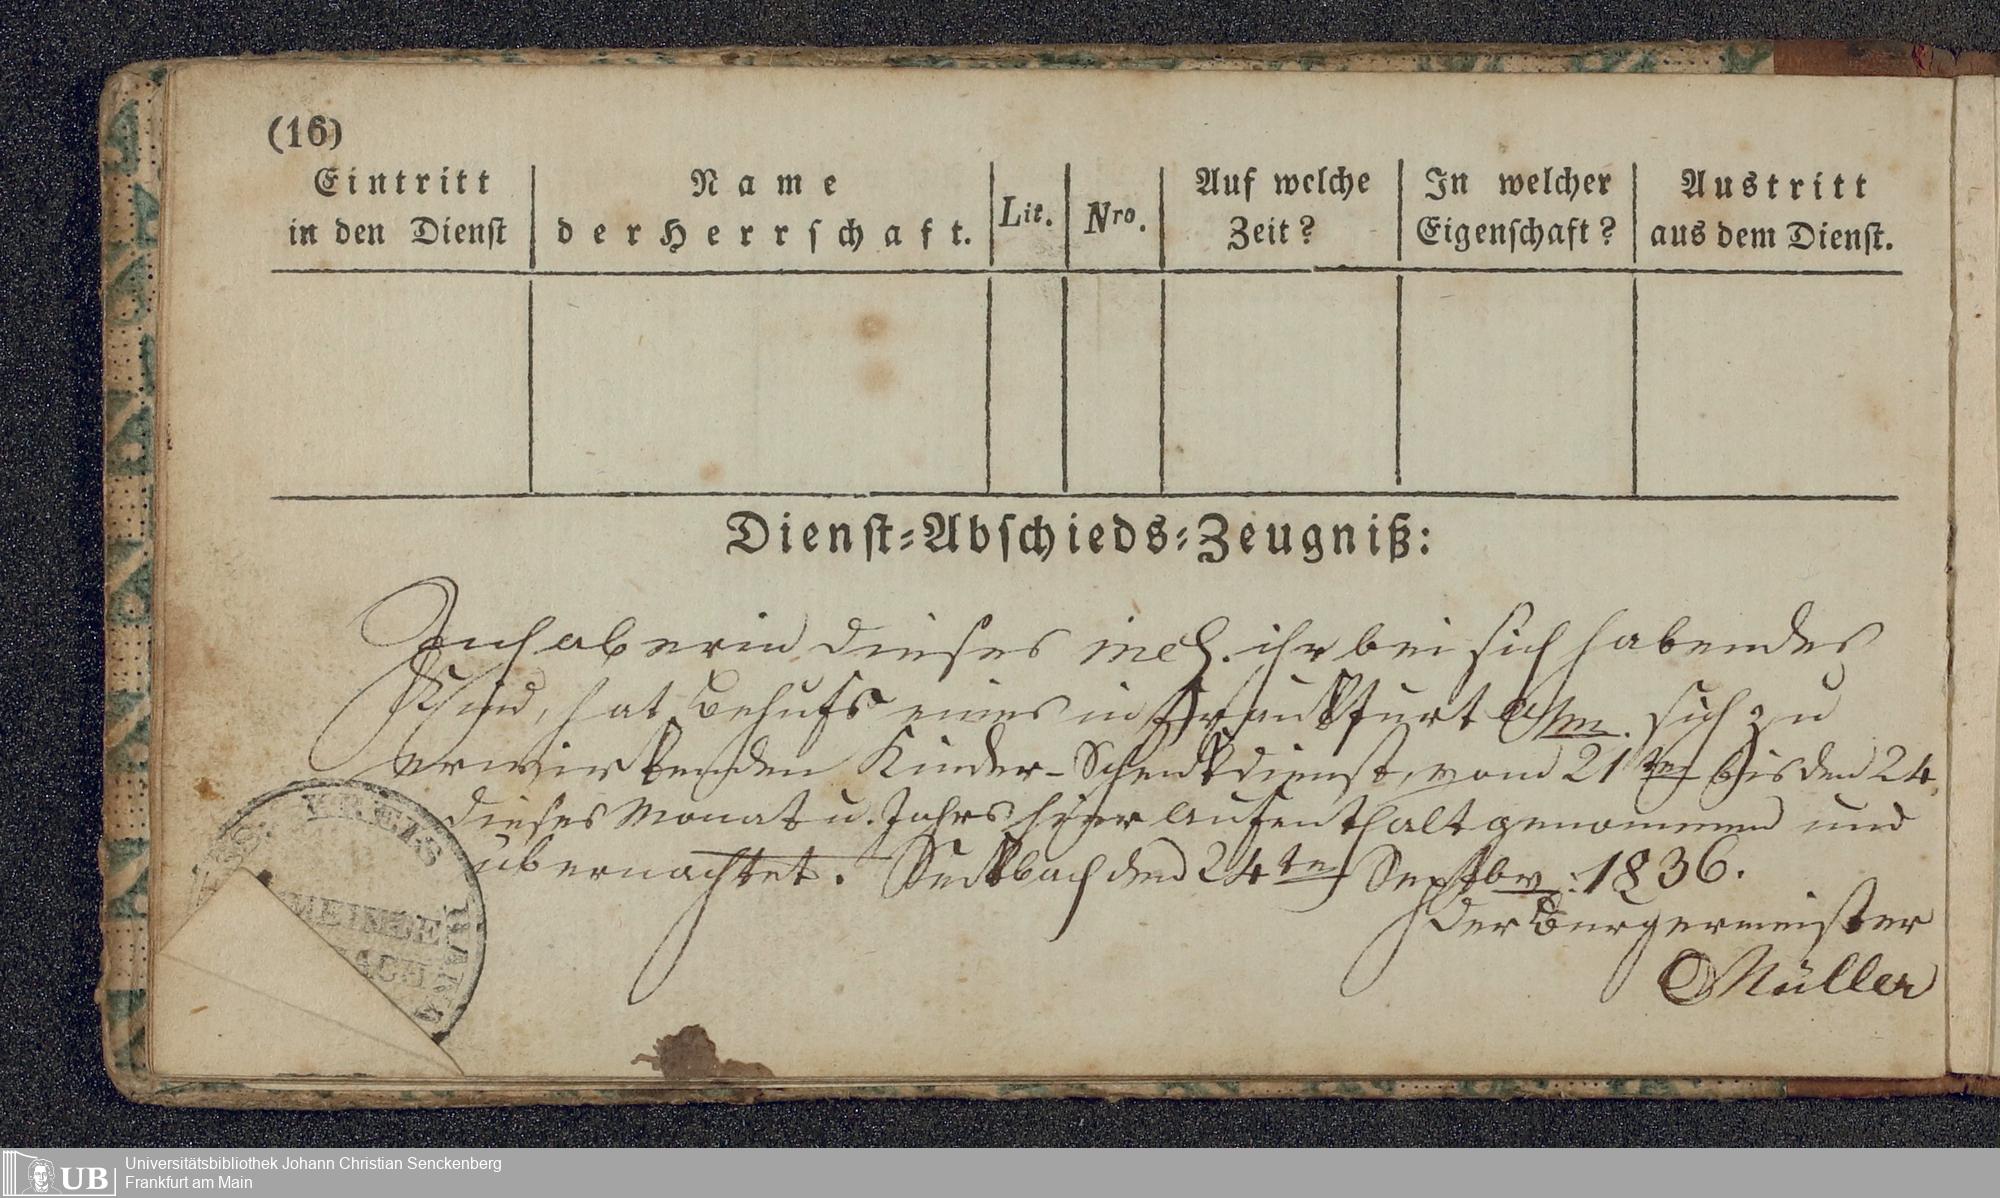 (16)
Eintritt
in den Dienst
Name
der Herrschaft.
Lit.
Nro.
Auf welche
Zeit?
In welcher
Eigenschaft?
Austritt
aus dem Dienst.
Dienst-Abschieds-Zeugniß:
Inhaberin dieses incl. ihr bei sich habendes
Kind, hat Behufs eines in Frankfurt a/m. sich zu
erwirkenden Kinder-Schenkdienst, vom 21ten bis den 24.
dieses Monat u. Jahrs hier Aufenthalt genommen und
übernachtet. Seckbach den 24ten Septbr: 1836.
Der Bürgermeister
Müller
KREIS HANAU
Universitätsbibliothek Johann Christian Senckenberg
Frankfurt am Main
UB